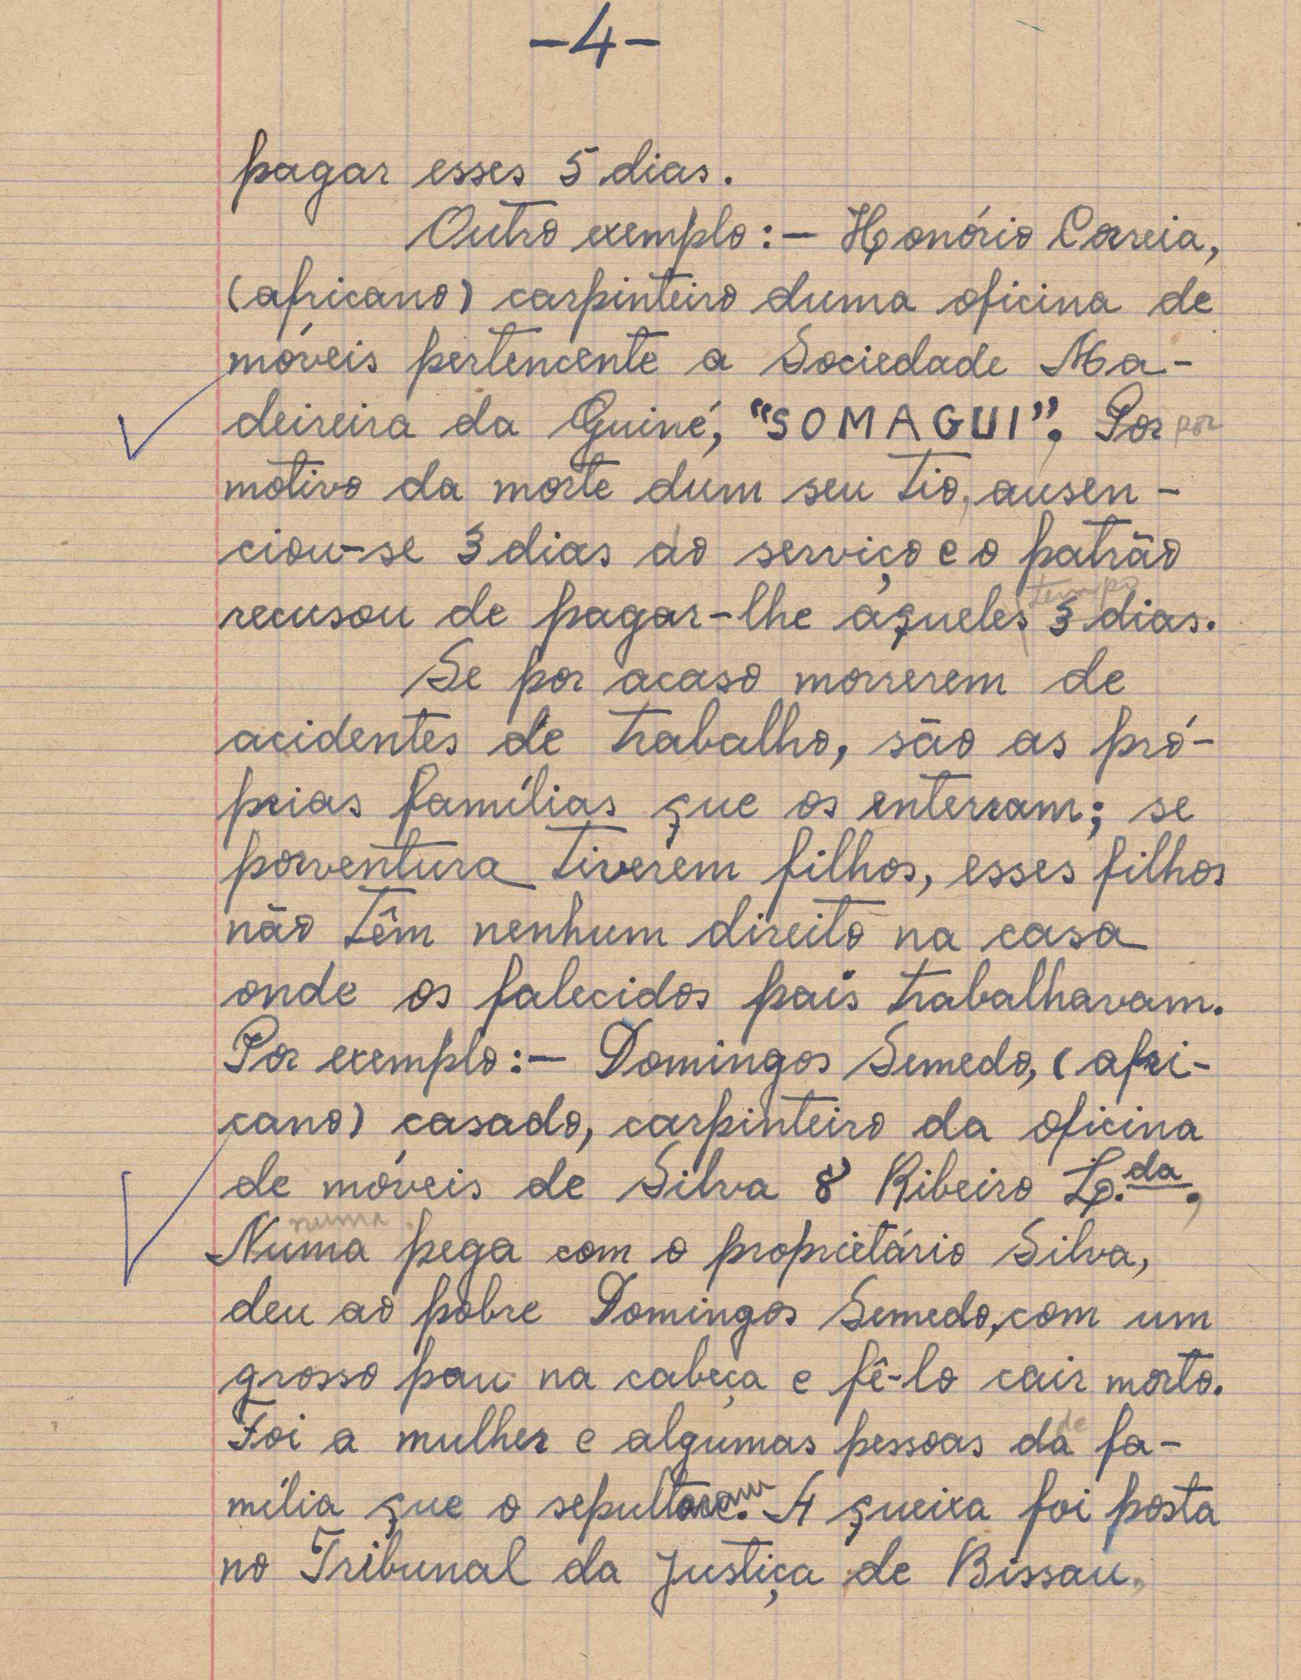 -4-
pagar esses 5 dias.
Outro exemplo:- Honório Correia,
(africano) carpinteiro duma oficina de
móveis pertencente a Sociedade Ma-
deireira da Guiné, "SOMAGUI". Por por
motivo da morte dum seu tio, ausen-
ciou-se 3 dias ao serviço e o patrão
tempo
recusou de pagar-lhe àqueles 3 dias.
Se por acaso morrerem de
acidentes de trabalho, são as pró-
prias famílias que os enterram; se
porventura tiverem filhos, esses filhos
não têm nenhum direito na casa
onde os falecidos pais trabalhavam.
Por exemplo:- Domingos Semedo, (afri-
cano) casado, carpinteiro da oficina
de móveis de Silva & Ribeiro L.da,
numa
Numa pega com o proprietário Silva,
deu ao pobre Domingos Semedo, com um
grosso pau na cabeça e fê-lo cair morto.
de
Foi a mulher e algumas pessoas da fa-
mília que o sepultaram. A queixa foi posta
no Tribunal da Justiça de Bissau,